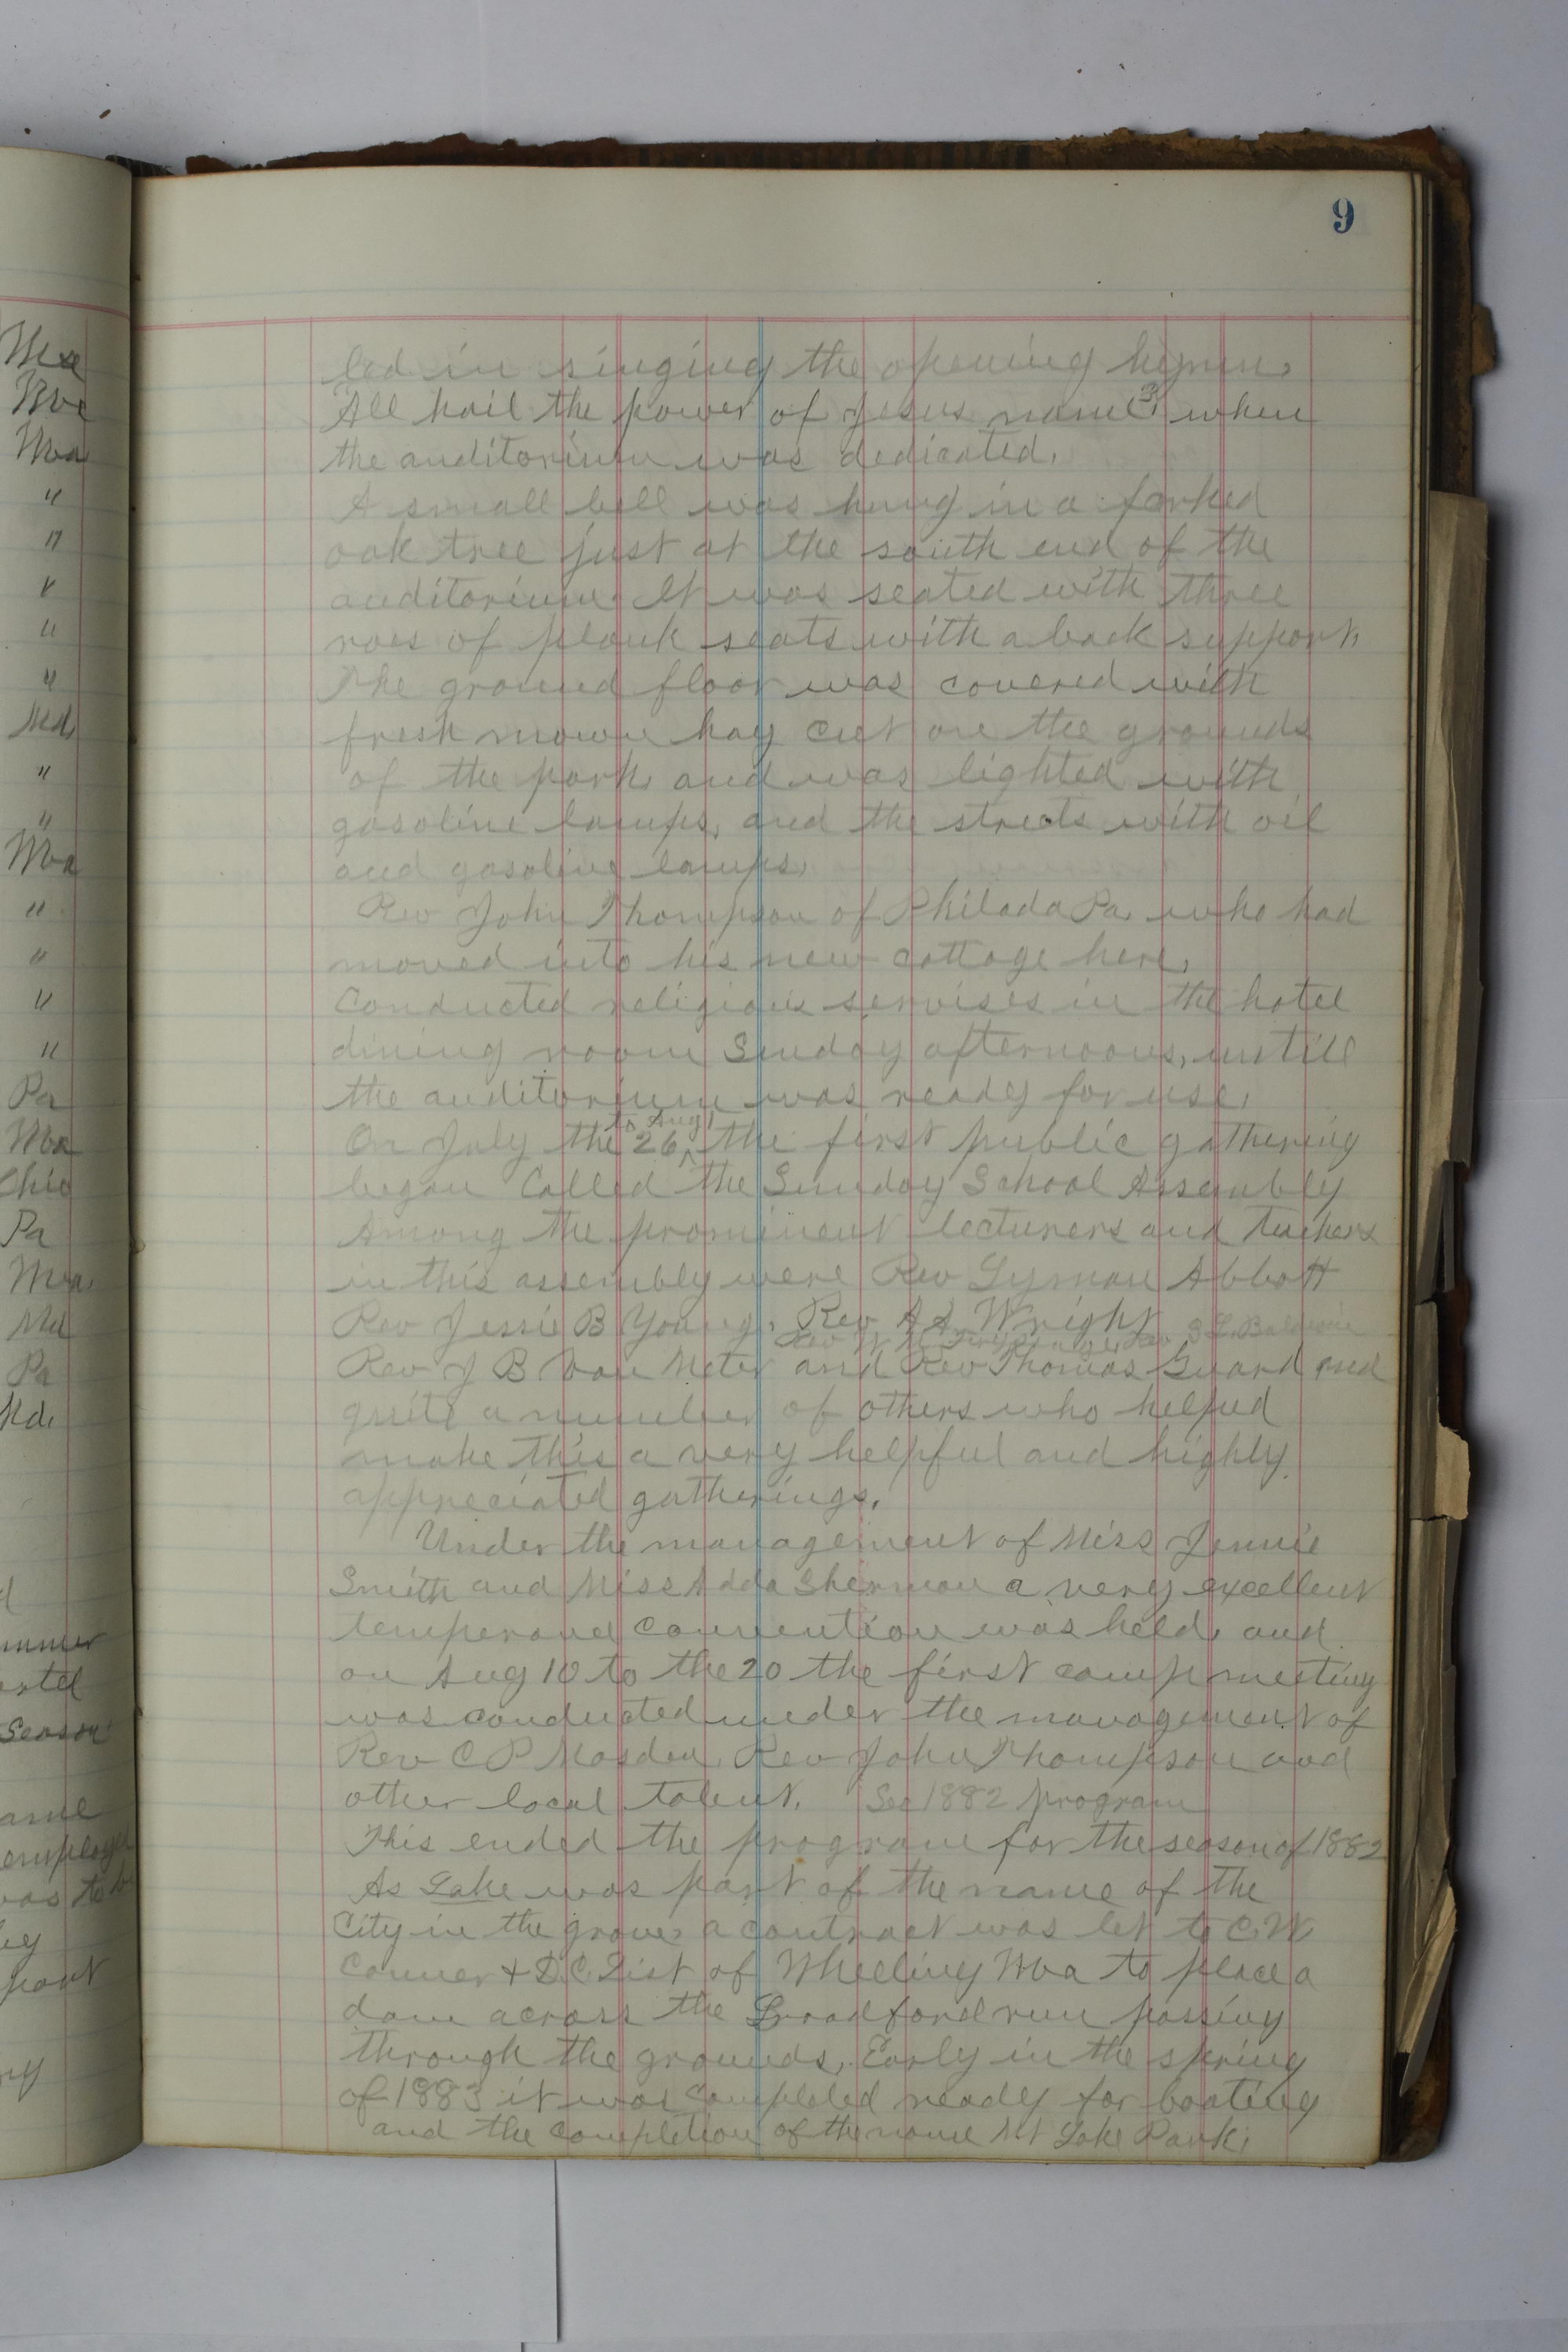 9
led in singing the opening hymn,
All hail the power of Jesus name, when
the auditorium was dedicated.
A small bell was hung in a forked
oak tree just at the south end of the
auditorium. It was seated with three
roes of plank seats with a back support,
The ground floor was covered with
fresh mown hay cut on the grounds
of the park, and was lighted with
gasoline lamps, and the streets with oil
and gasoline lamps,
Rev John Thompson of Philada Pa, who had
moved into his new cottage here,
Conducted religious servises in the hotel
dining room Sunday afternoons, untill
the auditorium was ready for use,
to Aug 1
On July the 26 ^ the first public gathering
began Called the Sunday School Assembly
Among the prominent lecturers and teachers
in this assembly were Rev Lyman Abbott
Rev Jessie B Young, Rev A A Wright S L Baldwin
Rev J B Van Meter and Rev Thomas Guard and
quite a number of others who helped
make this a very helpful and highly
appreciated gatherings.
Under the management of Miss Jennie
Smith and Miss Adda Sherman a very excellent
temperance convention was held, and
on Aug 10 to the 20 the first camp meeting
was conducted under the management of
Rev C P Masden, Rev John Thompson and
other local talent. See 1882 program
This ended the program for the season of 1882
As Lake was part of the name of the
City in the grove, a contract was let to C.W.
Conner & D.C. List of Wheeling Wva to place a
dam across the Broadford run passing
through the grounds, Early in the spring
of 1883 it was completed ready for boating
and the completion of the name Mt Lake Park,
Wva
"
"
"
"
"
Md,
"
"
Wva
"
"
"
"
Pa
Wva
Ohio
Pa
Wva
Md
Pa
Md,